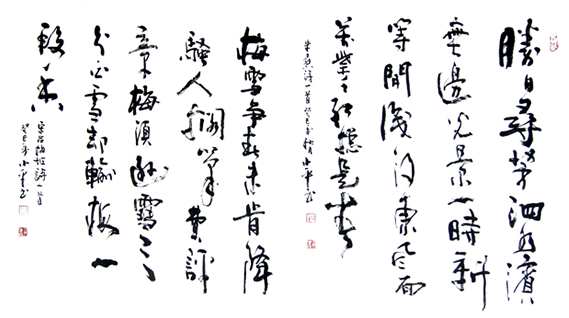 勝日尋芳泗水濱
無邊光景一時新
等閒識得東風面
萬紫千紅總是春
朱熹詩一首癸巳
梅雪爭春未肯降
騷人擱筆費評
章梅須遜雪三
分白雪却輸梅一
段香
宋盧梅坡詩一首
癸巳年